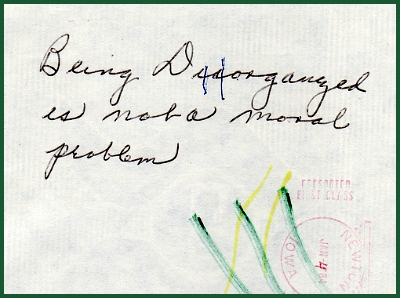 Being Disorganized
is not a moral
problem
PRESORTED
FIRST CLASS
NEWTON
JAN 4 84
IOWA